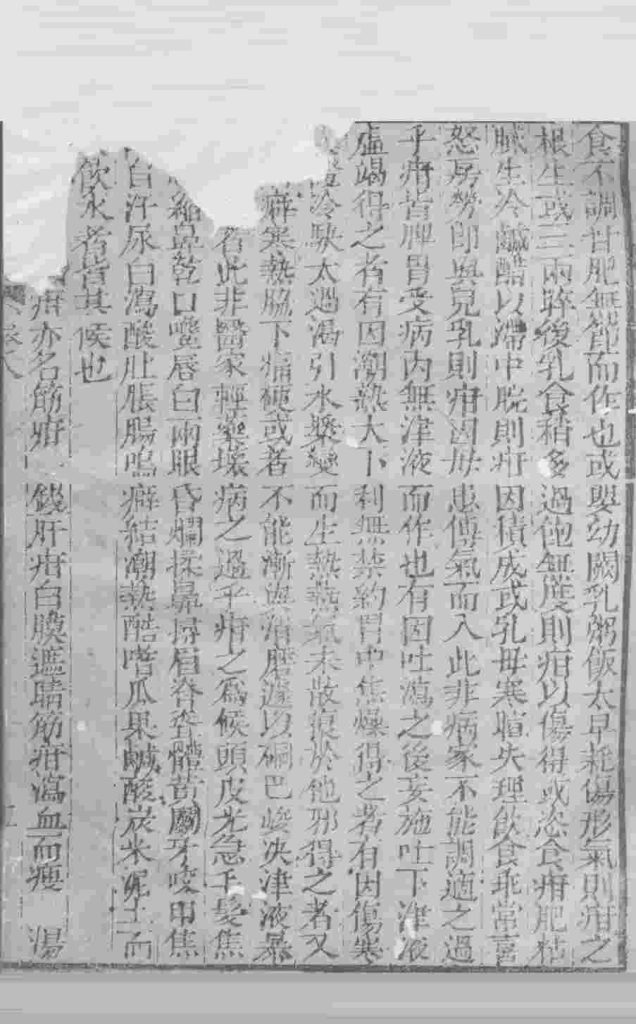 食不調甘肥無節而作也或嬰幼闕乳粥飯太早耗傷形氣則疳之
根生或三兩晬後乳食稍多過飽無度則疳以傷得或恣食甘肥粘
膩生冷鹹酸以滯中脘則疳因積成或乳母寒暄失理飲食乖常喜
怒房勞即與兒乳則疳因母患傳氣而入此非病家不能調適之過
乎疳皆脾胃受病内無津液而作也有因吐瀉之後妄施吐下津液
虛竭得之者有因潮熱大下利無禁約胃中焦燥得之者有因傷寒
冷駃太過渴引水漿變而生熱熱氣未散復於他邪得之者又
癖寒熱脇下痛硬或者不能漸與消磨遽以硐巴峻决津液暴
者此非醫家輕藥壊病之過乎疳之爲候頭皮光急毛髮焦
鼻乾口嚵唇白兩眼昏爛揉鼻捋眉脊聳體黃鬬牙咬甲焦
自汗尿白瀉酸肚脹腸鳴癖結潮熱酷嗜瓜果鹹酸炭米泥土而
飲水者皆其候也
疳亦名筋疳 錢肝疳白膜遮睛筋疳瀉血而瘦 湯